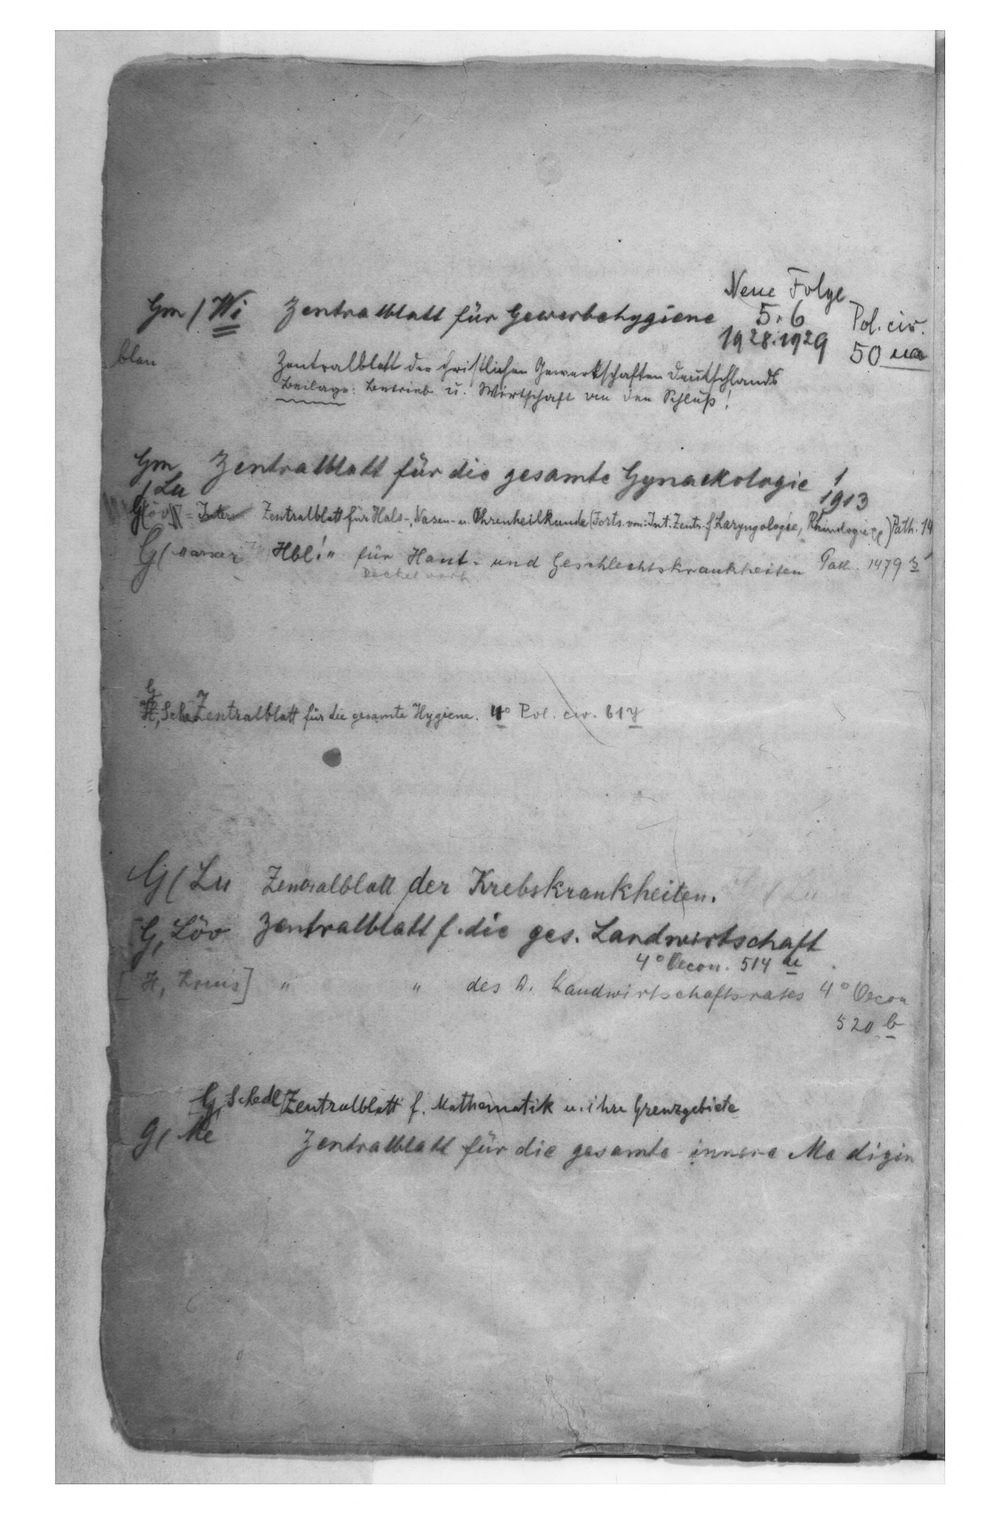 Neue Folge
Gm / Wi Zentralblatt für Gewerbehygiene 5.6 Pol. civ.
1928.1929 50 ua
blau Zentralblatt der christlichen Gewerkschaften Deutschlands
Beilage: Betrieb u. Wirtschaft an den Schluß!
Gm Zentralblatt für die gesamte Gynaekologie 1
/ Lu 1913
Zentralblatt für Hals-, Nasen- u. Ohrenheilkunde (Forts. von: Int. Zentr. f Laryngologie, Rhinologie) Path. 14
G/ Hbl! " für Haut- und Geschlechtskrankheiten Path. 1479
Deckel
G
H, Sche Zentralblatt für die gesamte Hygiene. 4° Pol. civ. 61
G/ Lu Zentralblatt der Krebskrankheiten.
G, Löv Zentralblatt f. die ges. Landwirtschaft
4° Oecon. 514 ae
[H, ] " " des D. Landwirtschaftsrates 4° Oecon
520 b
G, Schedl Zentralblatt f. Mathematik u. ihre Grenzgebiete
G, Me Zentralblatt für die gesamte innere Medizin